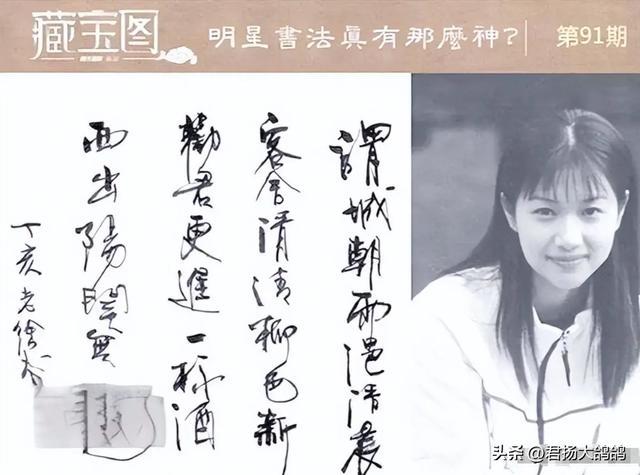 藏宝图
明星書法眞有那麼神?
第91期
渭城朝雨浥清晨
客舍清清柳色新
勸君更進一杯酒
西出陽関無
丁亥老徐
头条 @君扬大鸽鸽